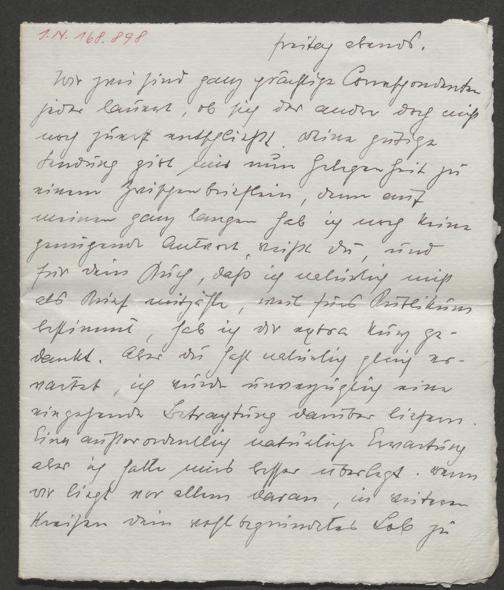 I.N. 168.898
freitag abends.
Wir zwei sind ganz prächtige Correspondenten
jeder lauert, ob sich der andere doch nicht
noch zuerst entschließt. Deine gütige
Sendung gibt mir nun Gelegenheit zu
einem Zwischenbrieflein, denn auf
meinen ganz langen hab ich noch keine
genügende Antwort, weißt du, und
für dein Buch, daß ich natürlich nicht
als Brief mitzähle, weil fürs Publikum
bestimmt, hab ich dir extra kurz ge-
dankt. Aber du hast natürlich gleich er-
wartet, ich würde unverzüglich eine
eingehende Betrachtung darüber liefern.
Eine außerordentlich natürliche Erwartung
aber ich hatte mirs besser überlegt. Wenn
dir liegt vor allem daran, in weiteren
Kreisen dein wohlbegründetes Lob zu